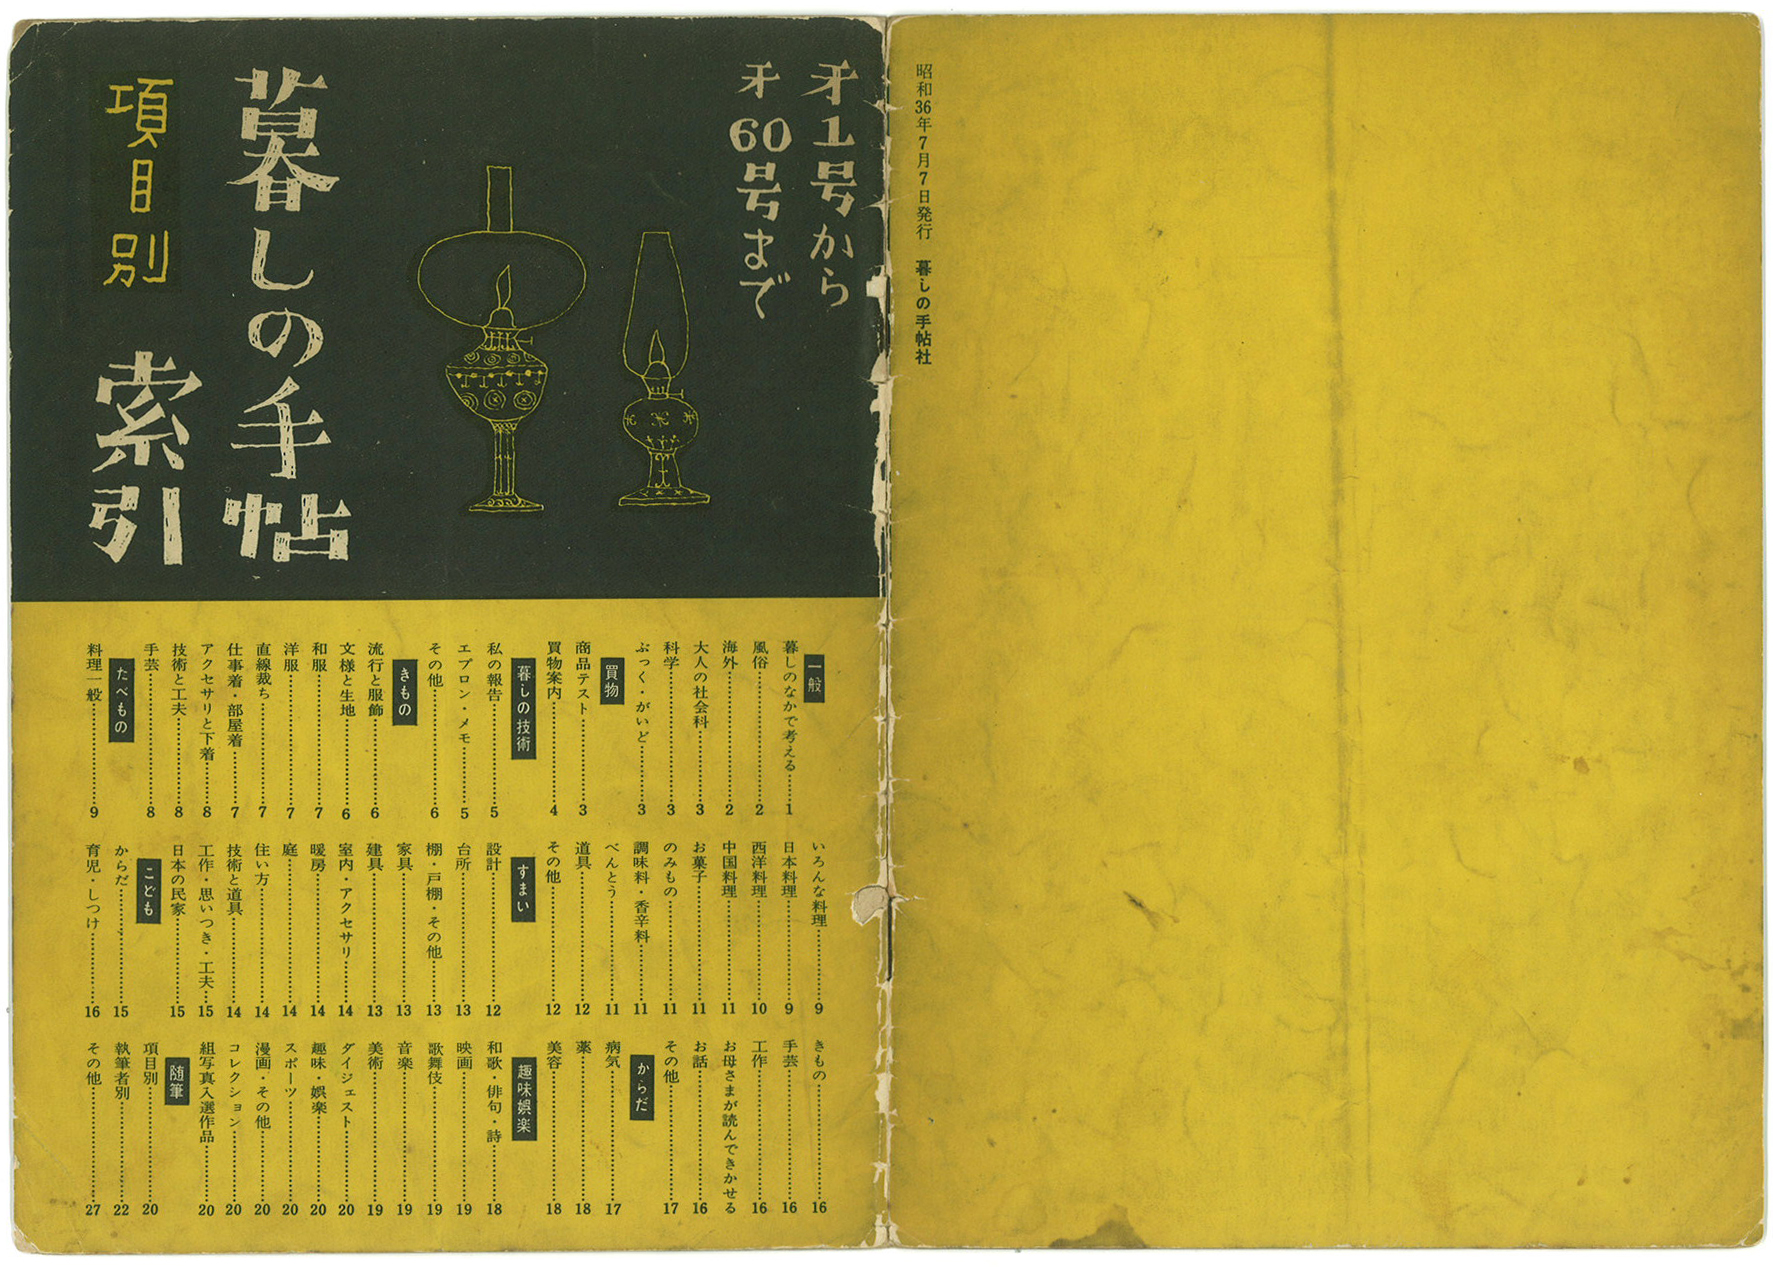 昭和36年7月7日発行　暮しの手帖社
才1号から
才60号まで
暮しの手帖
項目別
索引
一般
暮しのなかで考える……1
風俗……2
海外……2
大人の社会科……3
科学……3
ぶっく・がいど……3
買物
商品テスト……3
買物案内……4
暮しの技術
私の報告……5
エプロン・メモ……5
その他……6
きもの
流行と服飾……6
文様と生地……6
和服……7
洋服……7
直線裁ち……7
仕事着・部屋着……7
アクセサリと下着……8
技術と工夫……8
手芸……8
たべもの
料理一般……9
いろんな料理……9
日本料理……9
西洋料理……10
中国料理……11
お菓子……11
のみもの……11
調味料・香辛料……11
べんとう……11
道具……12
その他……12
すまい
設計……12
台所……13
棚・戸棚・その他……13
家具……13
建具……13
室内・アクセサリ……14
暖房……14
庭……14
住い方……14
技術と道具……14
工作・思いつき・工夫…15
日本の民家……15
こども
からだ……15
育児・しつけ……16
きもの……16
手芸……16
工作……16
お母さまが読んできかせる
お話……16
その他……17
からだ
病気……17
薬……18
美容……18
趣味娯楽
和歌・俳句・詩……18
映画……19
歌舞伎……19
音楽……19
美術……19
ダイジェスト……20
趣味・娯楽……20
スポーツ……20
漫画・その他……20
コレクション……20
組写真入選作品……20
随筆
項目別……20
執筆者別……22
その他……27